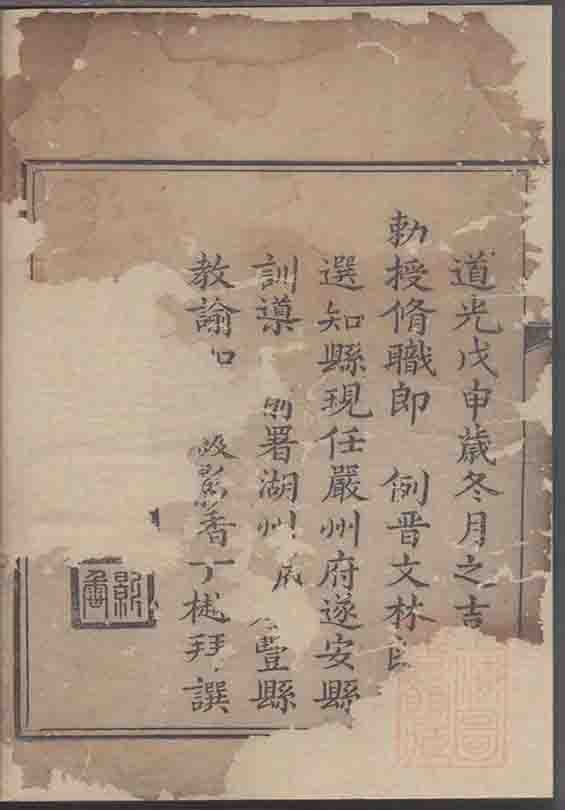 道光戊申歲冬月之吉
勅授脩職郎 例晋文林
選知縣現任嚴州府遂安縣
訓導 署湖州 豐縣
教諭 香丁樾拜譔